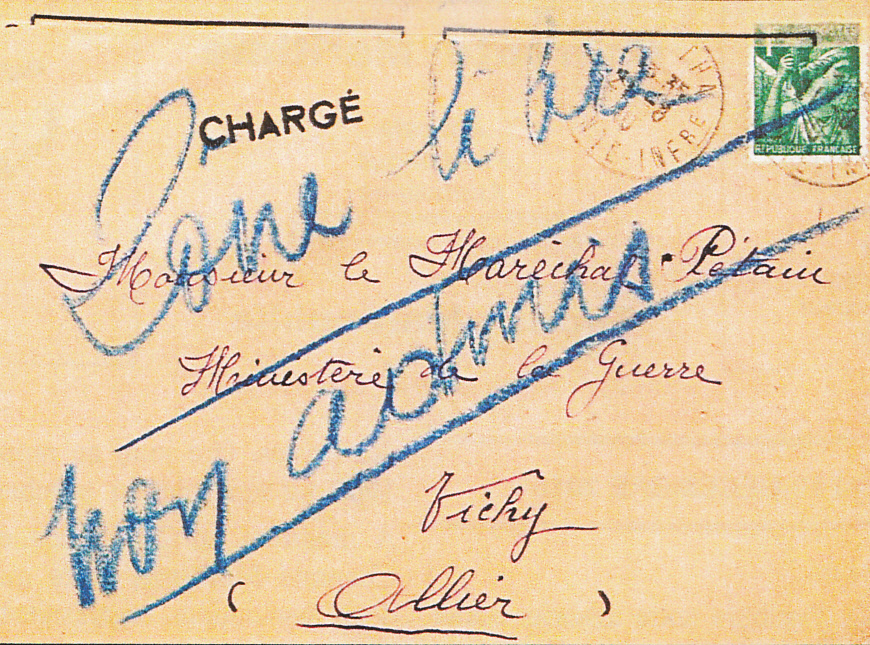 CHARGÉ
Zone libre
non admis
RÉPUBLIQUE FRANÇAISE
Monsieur le Maréchal Pétain
Ministère de la Guerre
Vichy
( Allier )
RIE-INFRE